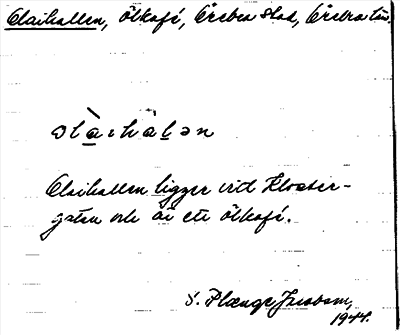 Olaihallen, Ölkafé, Örebro stad, Örebro län.
Olaihallen ligger vid Kloster-
gatan och är ett ölkafé.
S. Plænge Jacobson,
1944.